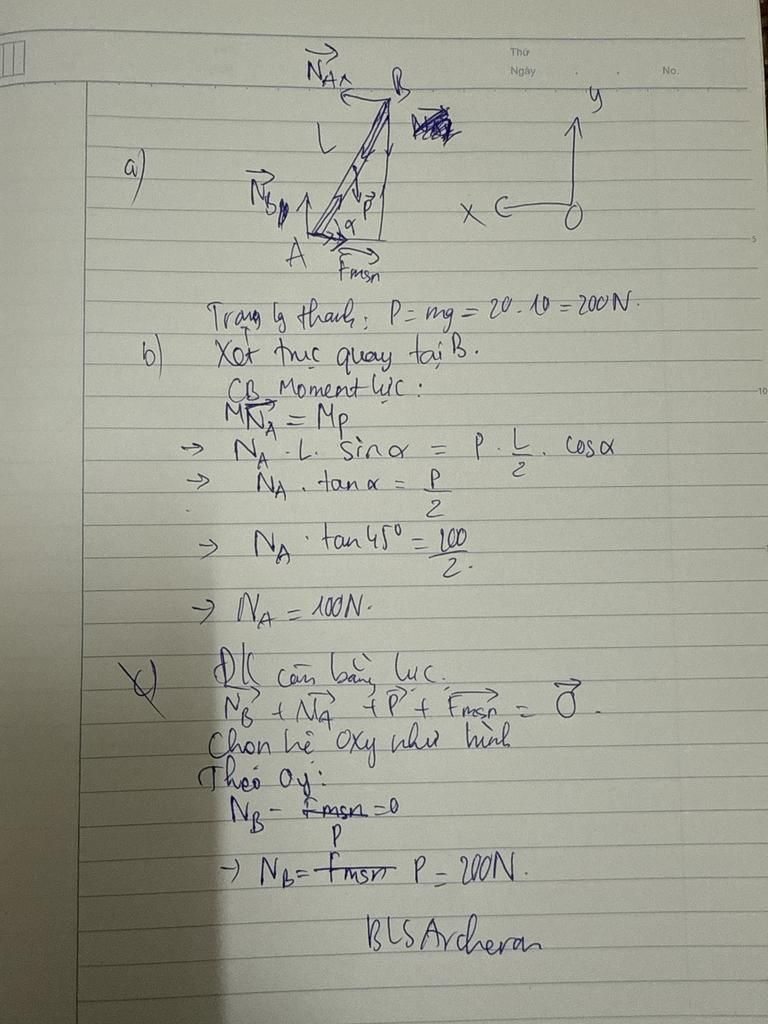 Thứ
Ngày . . No.
a)
N_A
B
L
N_B
P
α
A
Fmsn
y
X
O
5
Trọng lg thanh: P = mg = 20 . 10 = 200N.
b) Xét trục quay tại B.
CB Moment lực:
M N_A = Mp
→ N_A . L . sinα = P . L/2 . cosα
→ N_A . tanα = P/2
10
→ N_A . tan45° = 100/2.
→ N_A = 100N.
c) ĐK cân bằng lực.
N_B + N_A + P + Fmsn = 0.
Chọn hệ Oxy như hình
Theo Oy:
N_B - Fmsn = 0
P
→ N_B = Fmsn P = 200N.
BLSArcheran